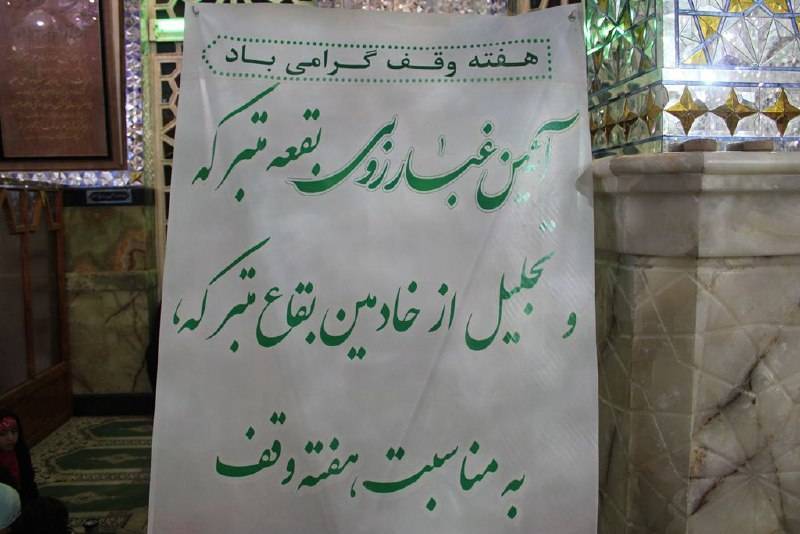 هفته وقف گرامی باد
آئین غبارروبی بقعه متبرکه
و تجلیل از خادمین بقاع متبرکه،
به مناسبت هفته وقف